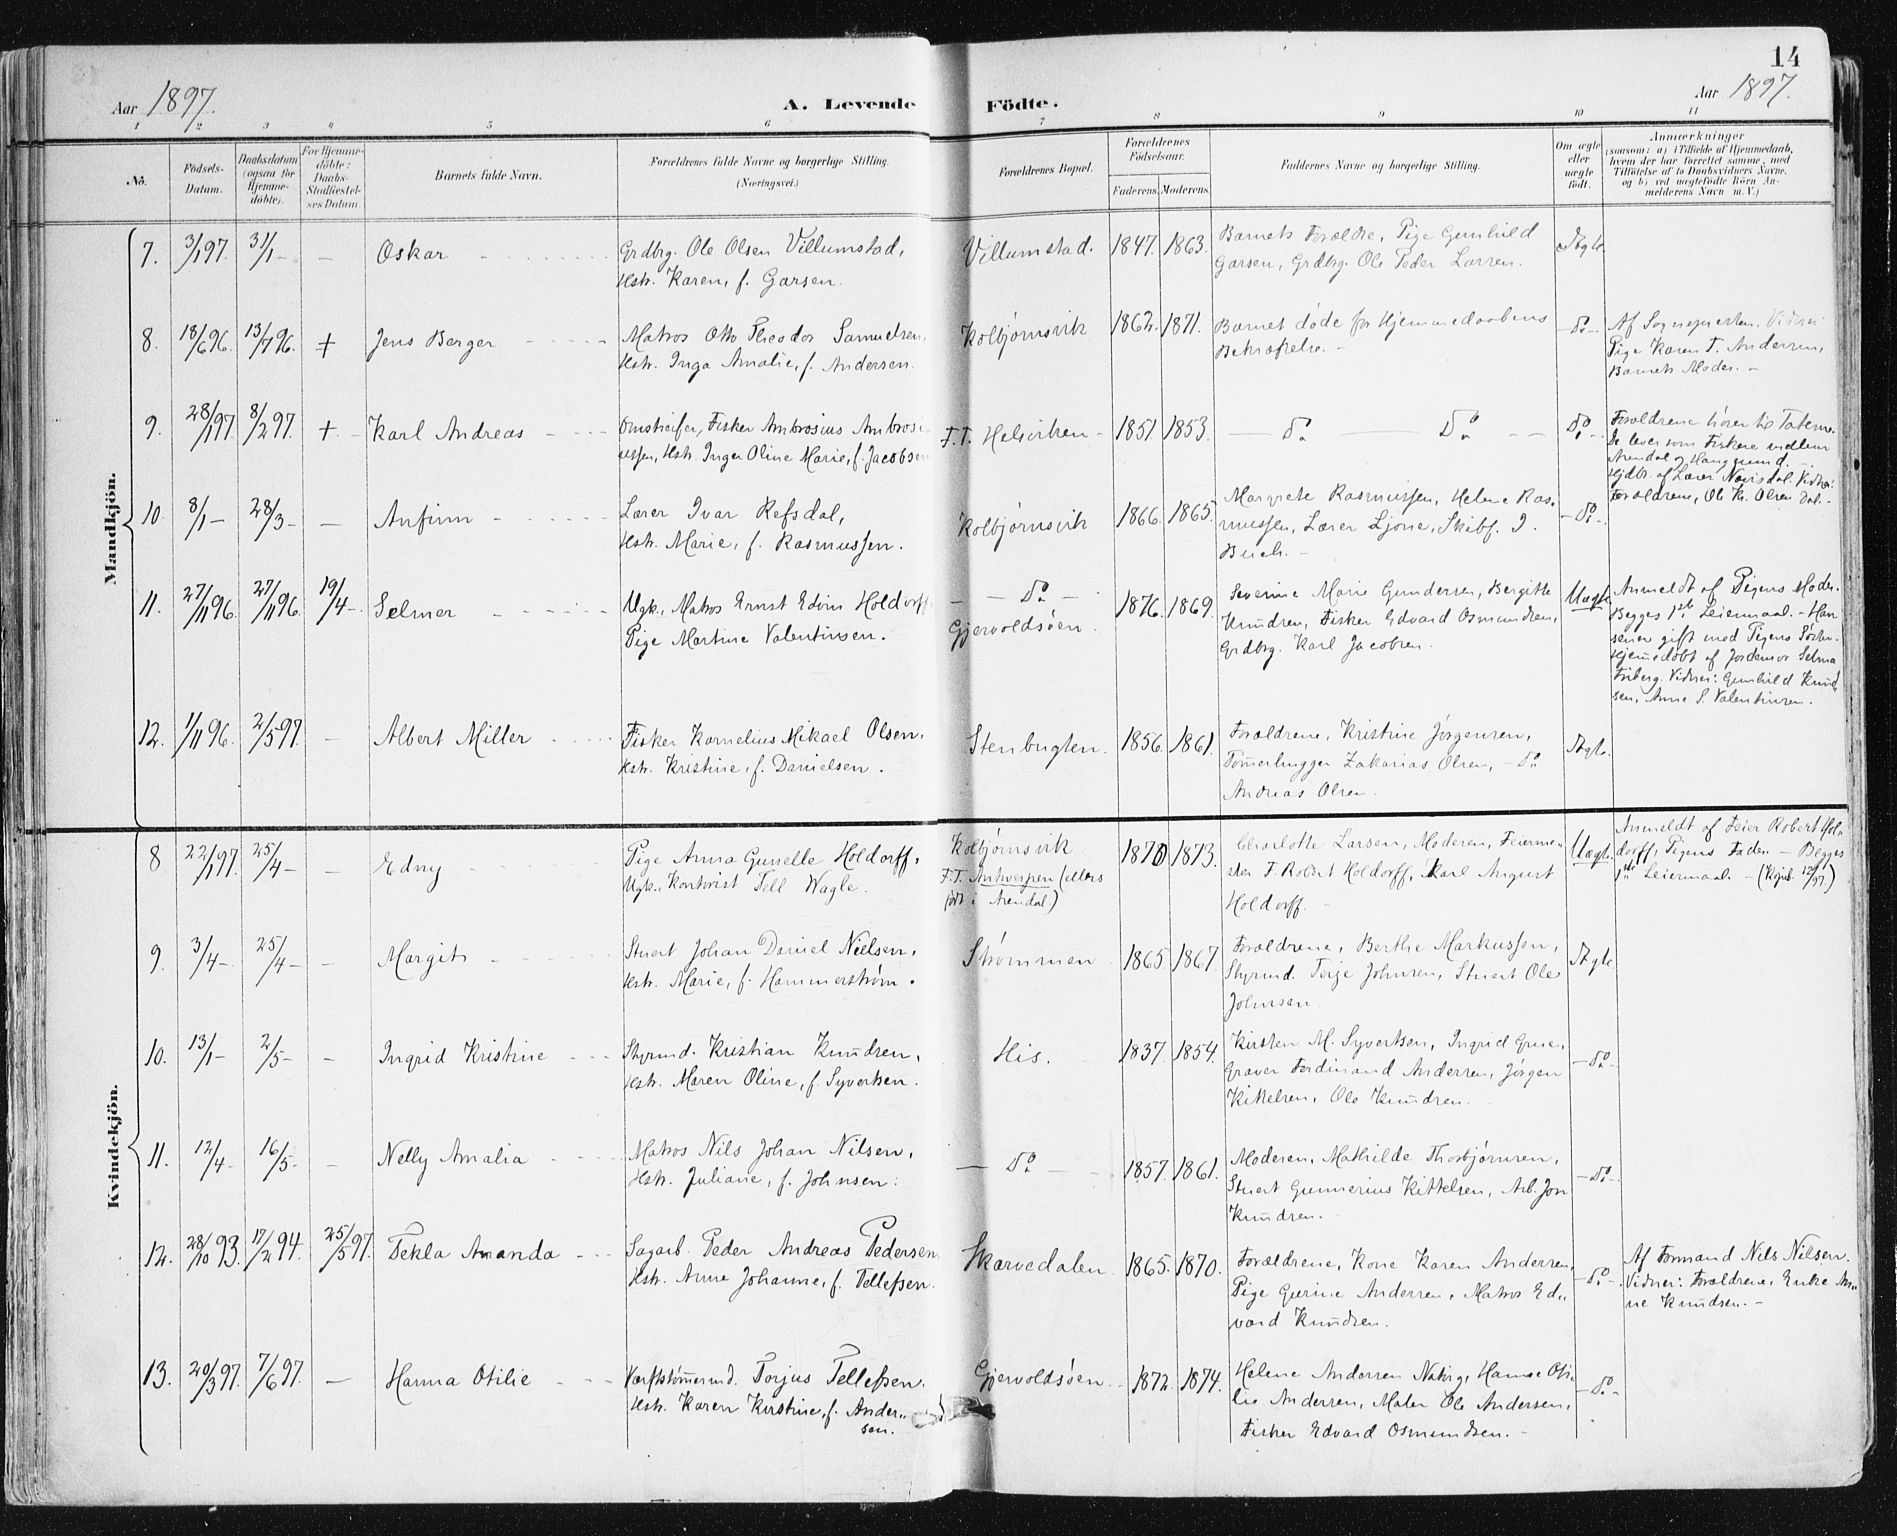 14
Aar 1897.
A. Levende Födte.
Aar 1897.
1 2 3 4 5 6 7 8 9 10 11
No.
Födsels-Datum.
Daabsdatum (ogsaa for Hjemme-döbte).
For Hjemme-döbte: Daabs-Stadfæstel-ses Datum.
Barnets fulde Navn.
Forældrenes fulde Navne og borgerlige Stilling.
(Næringsvei.)
Forældrenes Bopæl.
Forældrenes Födselsaar.
Faderens. Moderens.
Faddernes Navne og borgerlige Stilling.
Om ægte eller uægte födt.
Anmærkninger
(saasom: a) i Tilfælde af Hjemmedaab,
hvem der har forrettet samme, med
Tilföielse af to Daabsvidners Navne,
og b) ved uægtefödte Börn An-
melderens Navn m. V.)
Mandkjön.
7. 3/1 97. 31/1 - - Oskar
Grdbrg. Ole Olsen Villumstad,
Hstr. Karen, f. Garsen.
Villumstad. 1847. 1863.
Barnets Forældre, Pige Gunhild
Garsen, Grdbrg. Ole Peder Larsen.
Ægte.
8. 18/6 96. 13/7 96. + Jens Berger
Matros Otto Theodor Samuelsen,
Hstr. Inga Amalie, f. Andersen.
Kolbjørnsvik 1862. 1871.
Barnet døde før Hjemmedaabens
Bekræftelse. -
- Do -
Af Sognepresten. Vidner
Pige Karen T. Andersen,
Barnets Moder. -
9. 28/1 97. 8/2 97. + Karl Andreas
Omstreifer, Fisker Ambrosius Ambrosi-
ussen, Hstr. Inger Oline Marie, f. Jacobsen
F.T. Helvirken - 1851. 1853.
- Do - Do - -
Do -
Forældrene hører til Taterne.
De lever som Fiskere mellem
Arendal og Haugesund.
Hjdbt. af Lærer Navisdal. Vidner:
Forældrene, Ole Kr. Olsen Dal. -
10. 8/1 - 28/3 - - Anfinn
Lærer Ivar Refsdal,
Hstr. Marie, f. Rasmussen.
Kolbjørnsvik 1866. 1865.
Margrete Rasmussen, Helene Ras-
mussen, Lærer Ljone, Skibsf. I.
Buch. -
- Do -
11. 27/11 96. 27/11 96. 19/4 - Selmer
Ugk. Matros Ernst Edvin Holdorff
Pige Martine Valentinsen.
- Do -
Gjervoldsøen. 1876. 1869.
Severine Marie Gundersen, Bergitte
Knudsen, Fisker Edvard Osmundsen,
Grdbrg. Karl Jacobsen.
Uægte
Anmeldt af Pigens Moder.
Begges 1ste Leiermaal. - Han
senere gift med Pigens Søster.
Hjemmedøbt af Jordemor Selma
Friberg. Vidner: Gunhild Knud-
sen, Anne S. Valentinsen.
12. 1/11 96. 2/5 97. - Albert Miller
Fisker Kornelius Mikael Olsen,
Hstr. Kristine, f. Danielsen.
Stenbugten. 1856. 1861.
Forældrene, Kristine Jørgensen,
Tømmerhugger Zakarias Olsen, - Do
Andreas Olsen.
Ægte.
Kvindekjön.
8 22/1 97. 25/4 - - Edny
Pige Anna Gunelle Holdorff,
Ugk. Kontorist Tell Wagle.
Kolbjørnsvik
F.T. Antwerpen (ellers
født i Arendal.) 1870 1873.
Charlotte Larsen, Moderen, Feierme-
ster F. Robert Holdorff, Karl August
Holdorff. -
Uægte.
Anmeldt af Feier Robert Hol-
dorff, Pigens Fader. - Begges
1ste Leiermaal. - (Kgjub. 12/9 97.)
9. 3/4 - 25/4 - - Margit
Stuert Johan Daniel Nielsen,
Hstr. Marie, f. Hammerstrøm.
Strømmen 1865. 1867.
Forældrene, Berthe Markussen,
Styrmd. Terje Johnsen, Stuert Ole
Johnsen.
Ægte
10. 13/1 - 2/5 - - Ingrid Kristine
Styrmd. Kristian Knudsen,
Hstr. Maren Oline, f. Syvertsen.
His. 1837. 1854.
Kirsten M. Syvertsen, Ingrid Grue,
Graver Ferdinand Andersen, Jørgen
Kittelsen, Ole Knudsen.
- Do -
11. 12/4 - 16/5 - - Nelly Amalia
Matros Nils Johan Nilsen,
Hstr. Juliane, f. Johnsen.
- Do - 1857. 1861.
Moderen, Mathilde Thorbjørnsen,
Stuert Gunnerius Kittelsen, Arb. Jon
Knudsen. -
- Do -
12. 28/10 93. 17/2 94. 25/5 97. Tekla Amanda
Sagarb. Peder Andreas Pedersen,
Hstr. Anne Johanne, f. Tellefsen.
Skarvedalen 1865. 1870.
Forældrene, Kone Karen Andersen,
Pige Gurine Andersen, Matros Ed-
vard Knudsen.
- Do -
Af Formand Nils Nilsen.
Vidner: Forældrene, Enke An-
ne Knudsen. -
13. 20/3 97. 7/6 97. - Hanna Otilie
Værftstømmermd. Torjus Tellefsen.
Hstr. Karen Kirstine, f. Ander-
sen.
Gjervoldsøen. 1872. 1874.
Helene Andersen Natvig, Hanna Oti-
lie Andersen, Maler Ole Andersen,
Fisker Edvard Osmundsen. -
- Do -